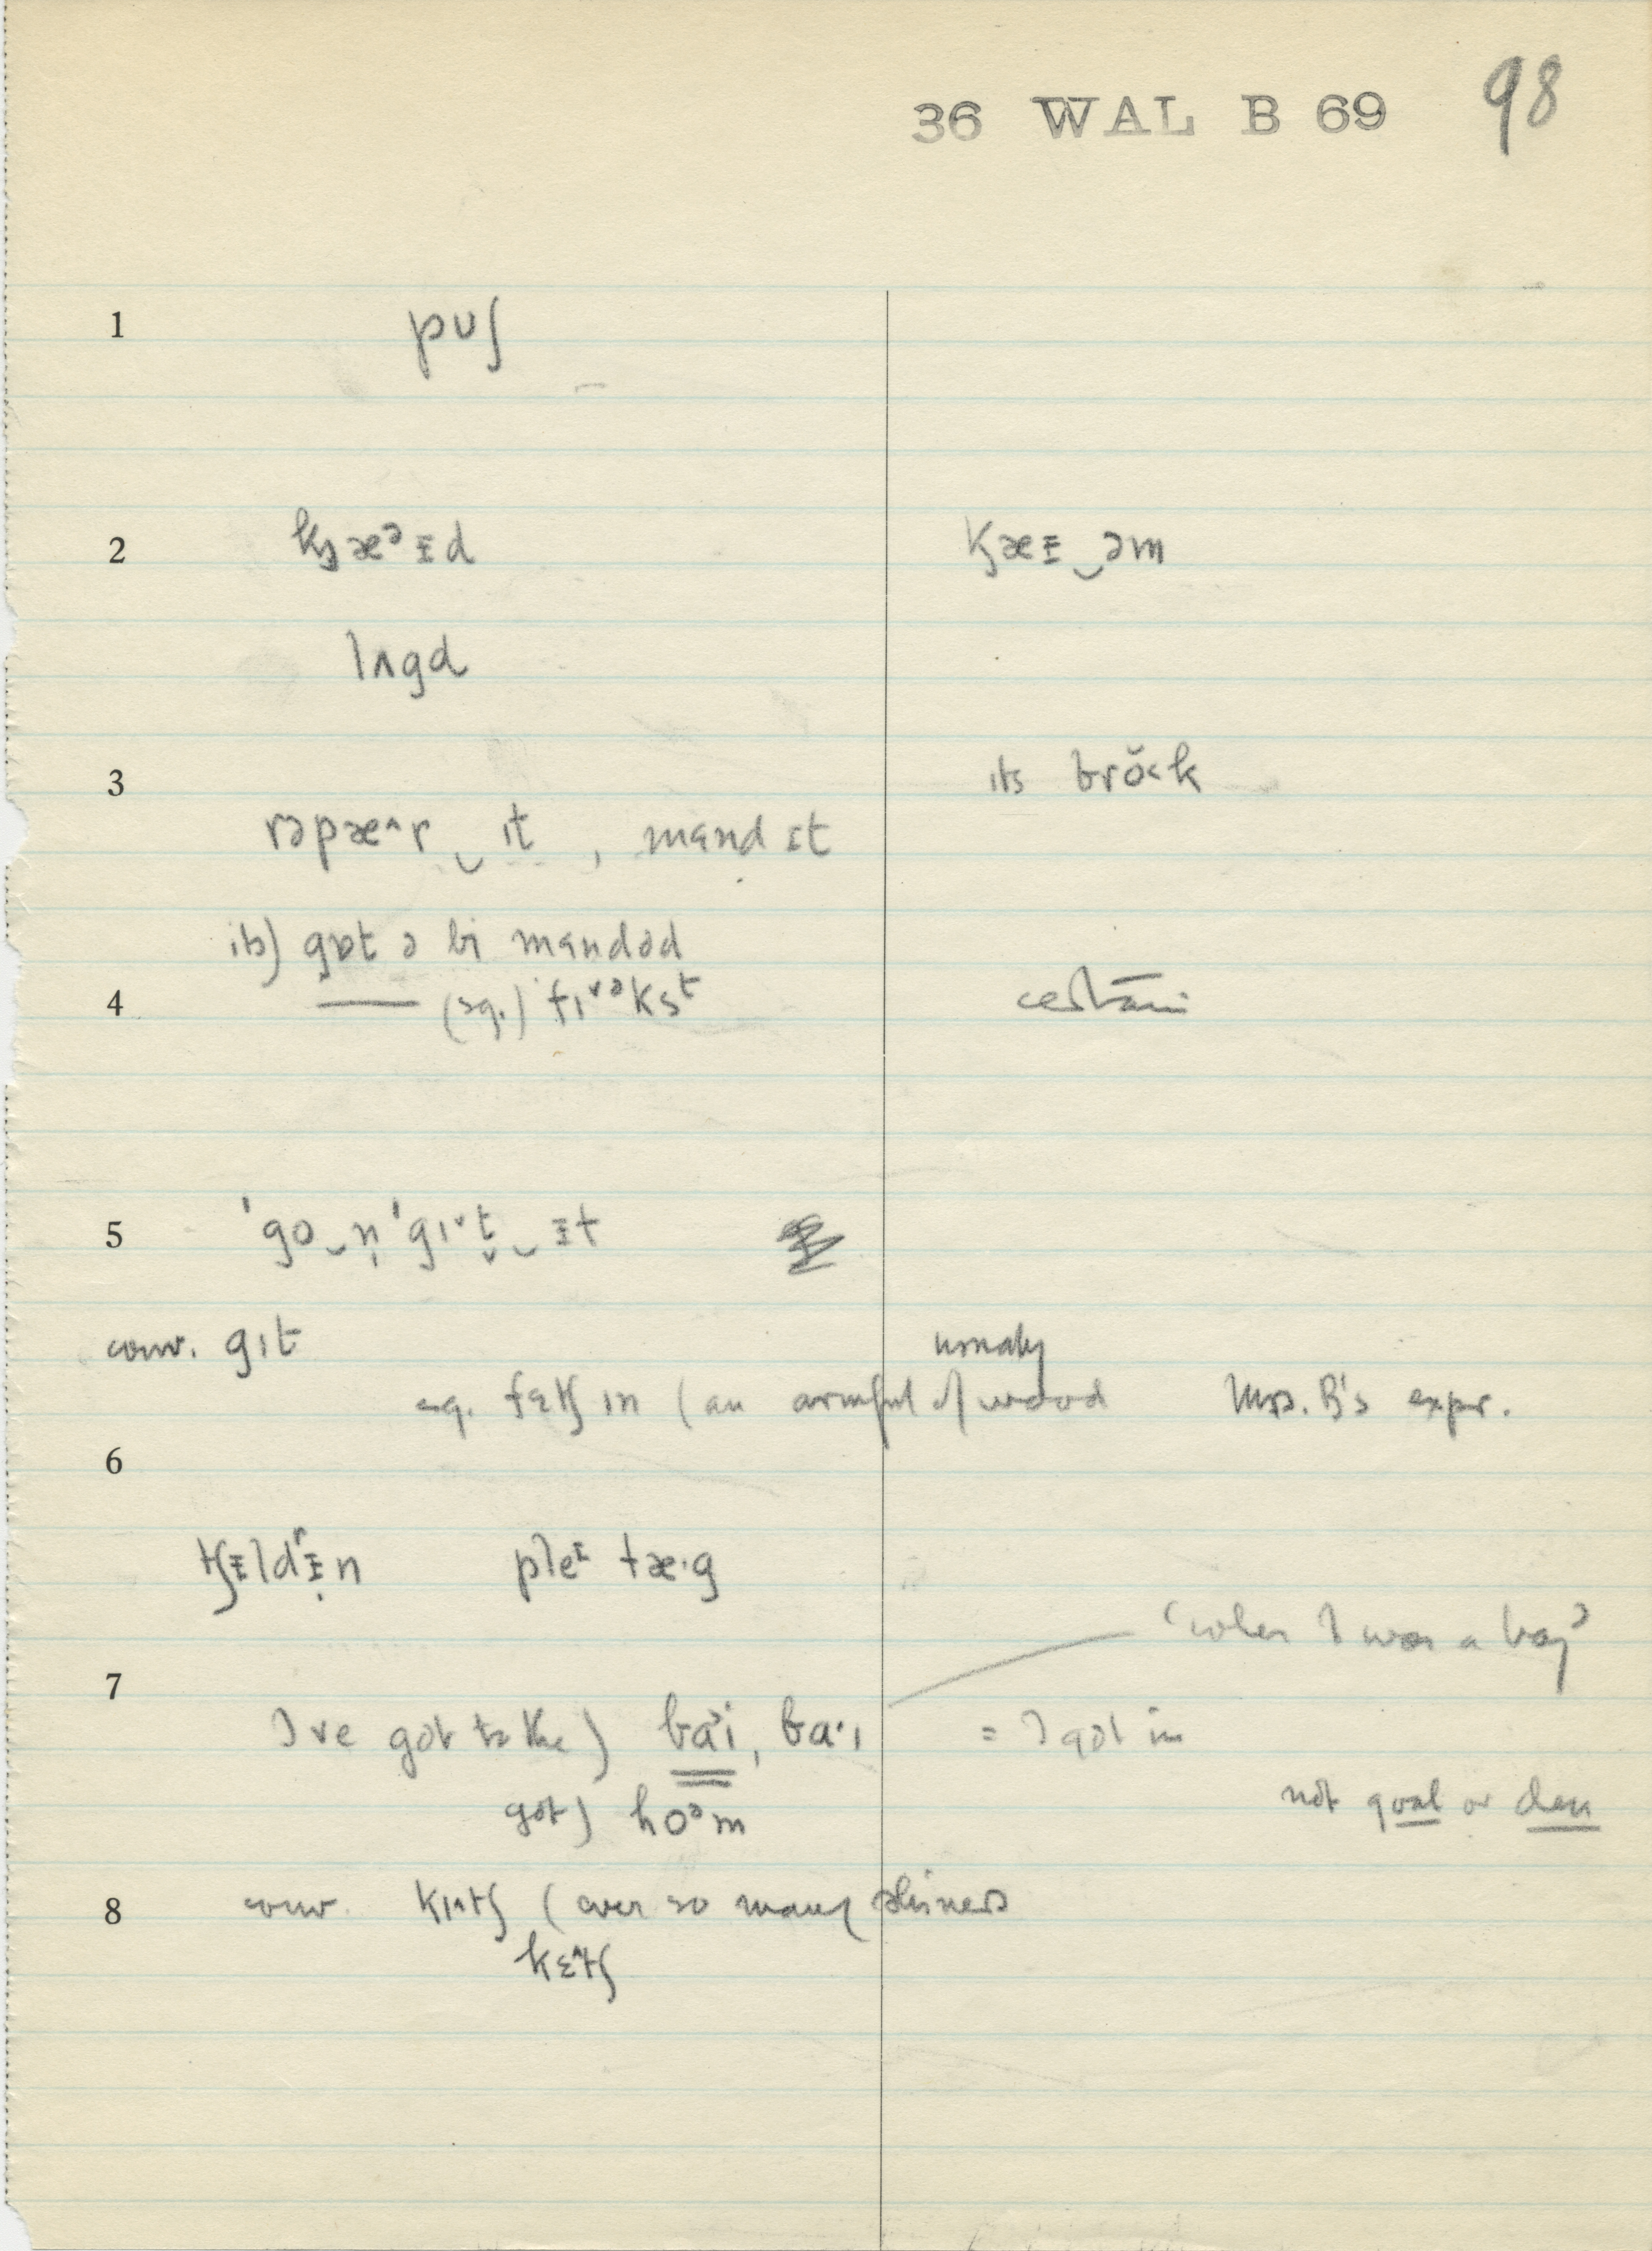 36 WAL B 69 98
1 puʃ
2 kæᵊɪd kæɪ‿əm
lʌgd
3 its brŏk
rəpæ^r‿ɪt , mɛnd ɪt
its) gɒt ə bi mɛndəd
4 —— (sq.) fɪ˅ᵊksᵗ certain
5 ˈgo‿n̩ ˈgɪ˅t̬‿ɪt
conv. gɪt usually
sq. fɛtʃ ɪn (an armful of wood Mrs. B's expr.
6
tʃɪldʳɪ̣n pleᶦ tæ·g
'when I was a boy'
7
I've got to the) baᵊi, ba·ɪ = I got in
got) hoᵊm not goal or den
8 conv. kɪ^tʃ (ever so many shiners
kɛ^tʃ